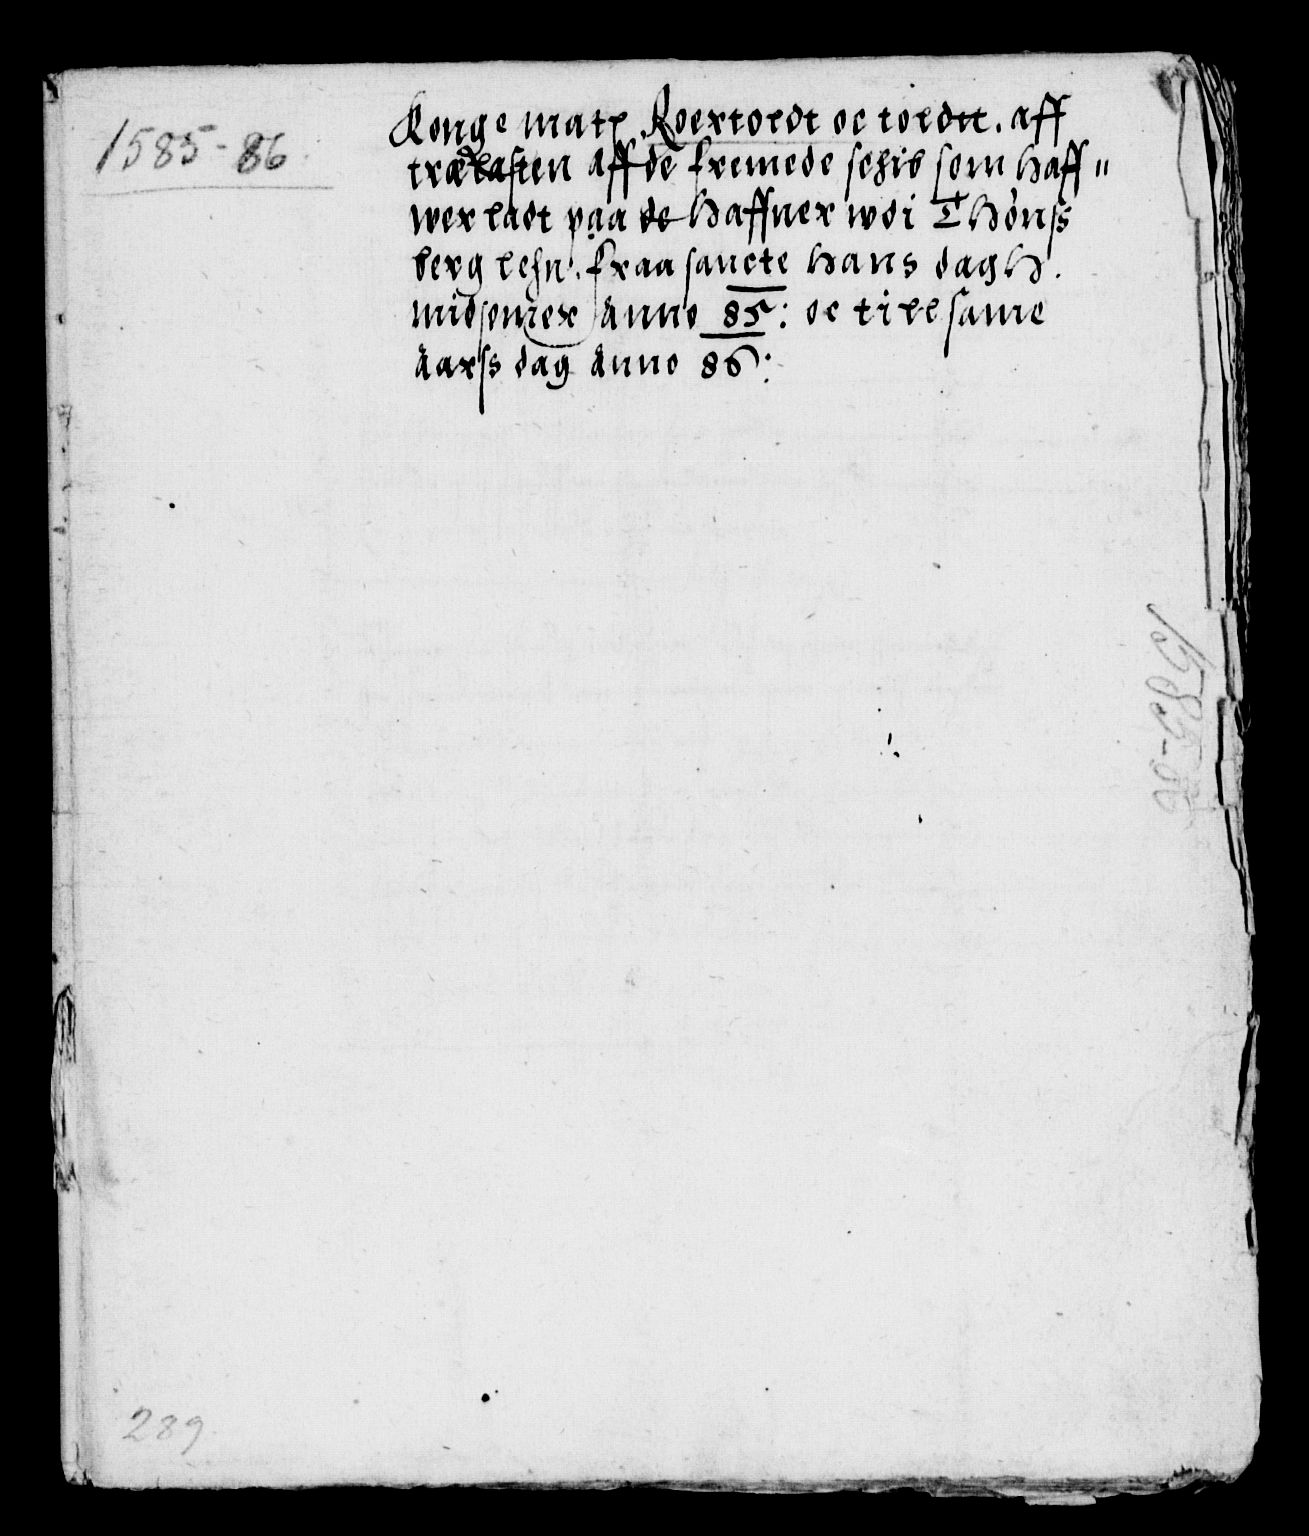 1585-86
Konge matz Roertoldt oc toldtt. aff
trælasten aff de fremede schib som haff"
wer ladt paa de haffner wdi Thønss
berg lehn. fraa sancte hans dagh.
midsomer Anno 85: oc till same
Aarss dag Anno 86:
1585-86
289